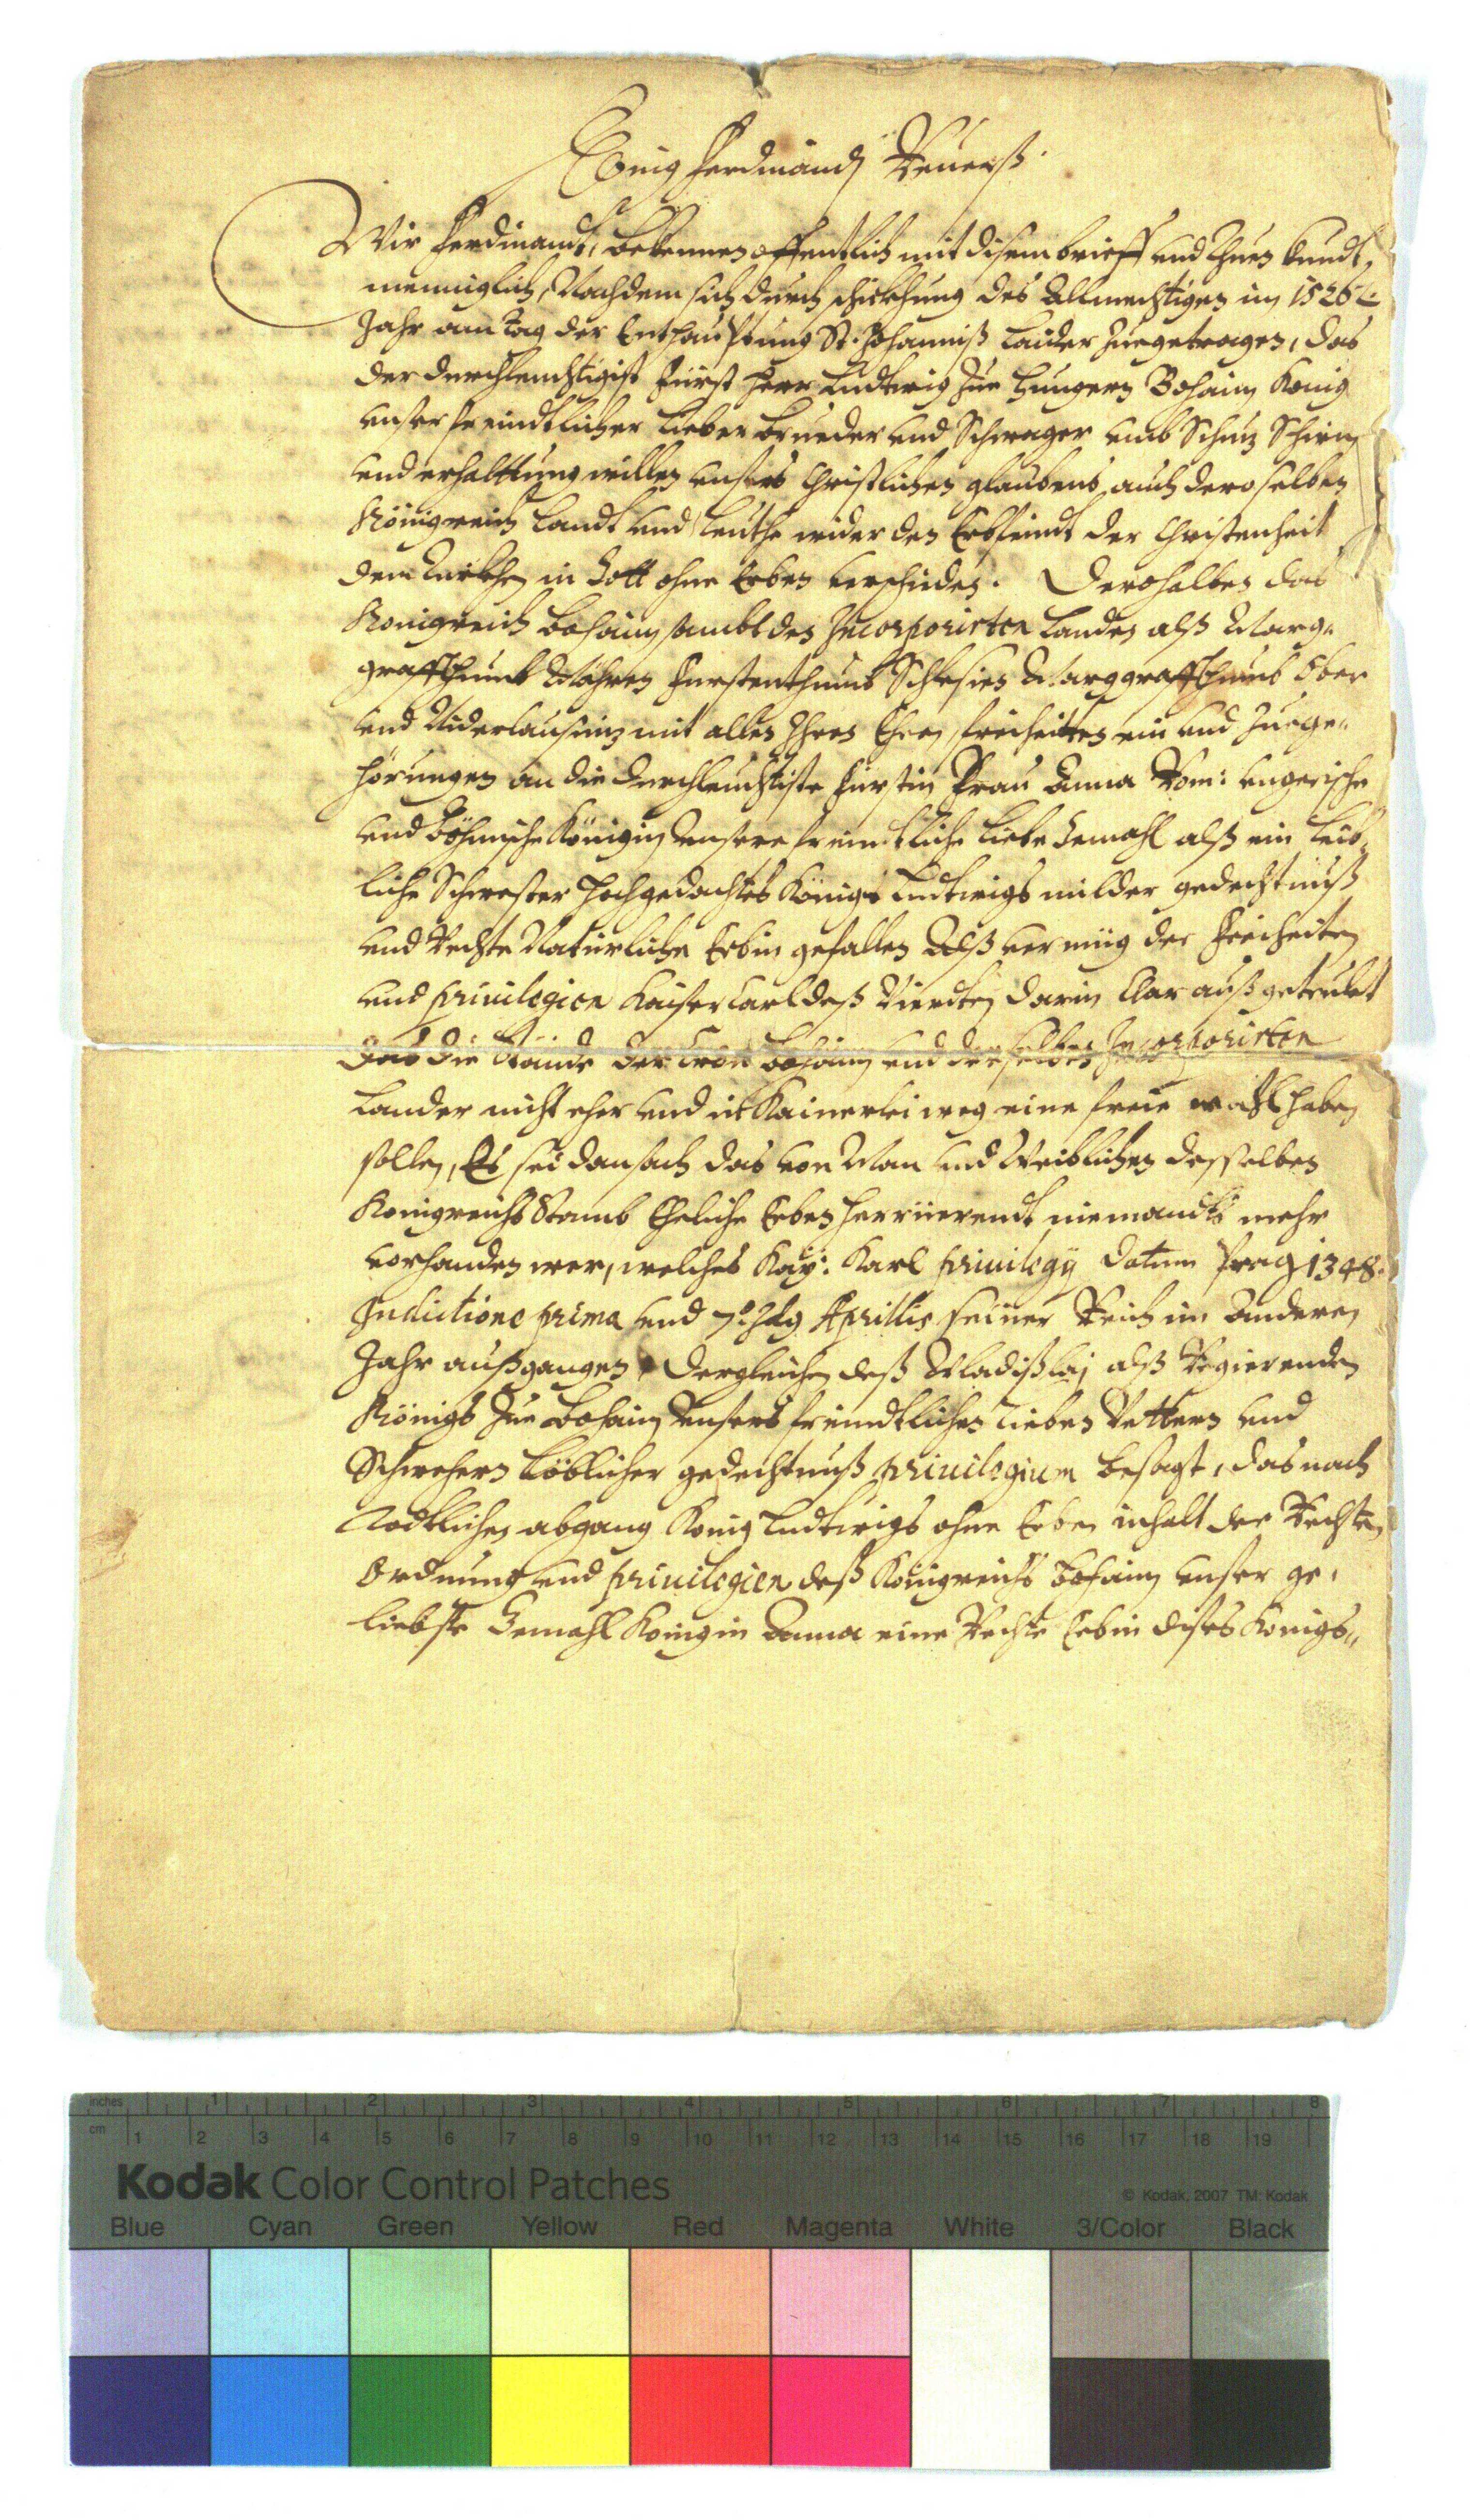 König Ferdinandj Reuerß.
Wir Ferdinandt, bekennen offentlich mit disem brieff vnd thuen kundt
menniglich, Nachdem sich durch schickhung des Allmechtigen im 1526.
Jahr am tag der Enthauptung St. Johanniß laider zuegetragen, das
der durchleuchtigist Fürst Herr Ludtwig zue Hungern Bohaim König
vnser freindtlicher lieber brueder vnd Schwager vmb Schuz Schirm
vnd erhalttung willen vnsers Christlichen glaubens auch deroselben
Königreich landt vnd leuthe wider den Erbfeindt der Christenheit
dem Türkhen in Gott ohne Erben verschieden. Derohalben das
Konigreich bohaim sambt den Incorporirten landen alß Marg-
graffthumb Mähren Furstenthumb Schlesien Marggraffthumb Ober
vnd Niderlausniz mit allen Ihren Ehren freiheitten ein vnd zuege-
hörungen an die durchleuchtiste Fürstin Frau Anna Rom: vngerische
vnd Böhmische Königin vnsere freindtliche liebe Gemahl alß ein leib-
liche Schwester hochgedachtes Königs Ludtwigs milder gedechtnuß
vnd Rechte Natürliche Erbin gefallen Alß vermüg der Freiheiten
vnd priuilegien Kaiser Carl deß Vierdten darin klar außgetrukt
das die Stände der Cron bohaim vnd derselben Incorporirten
lander nicht eher vnd in kainerlei weg eine freie wahl haben
sollen, Es sei dan sach das von Man vnd Weiblichen desselben
Königreichs Stamb Eheliche Erben herrüerendt niemandts mehr
vorhanden wer, welches Kay: Karl priuilegij datum Prag 1348.
Indictione prima vnd 7.º Idg Aprillis seiner Reich im anderen
Jahr außgangen Dergleichen deß Vladißlaj alß Regierenden
Königs zue bohaim vnsers freindtlichen lieben Vettern vnd
Schwehern löblicher gedechtnuß priuilegium besagt, das nach
Todtlichen abgang König Ludtwigs ohne Erben inhalt der Rechten
Ordnung vnd priuilegien deß Königreichs bohaim vnser ge-
liebste Gemahl Königin Anna eine Rechte Erbin dises Königs-
inches 1 2 3 4 5 6 7 8
cm 1 2 3 4 5 6 7 8 9 10 11 12 13 14 15 16 17 18 19
Kodak Color Control Patches
© Kodak, 2007 TM: Kodak
Blue Cyan Green Yellow Red Magenta White 3/Color Black